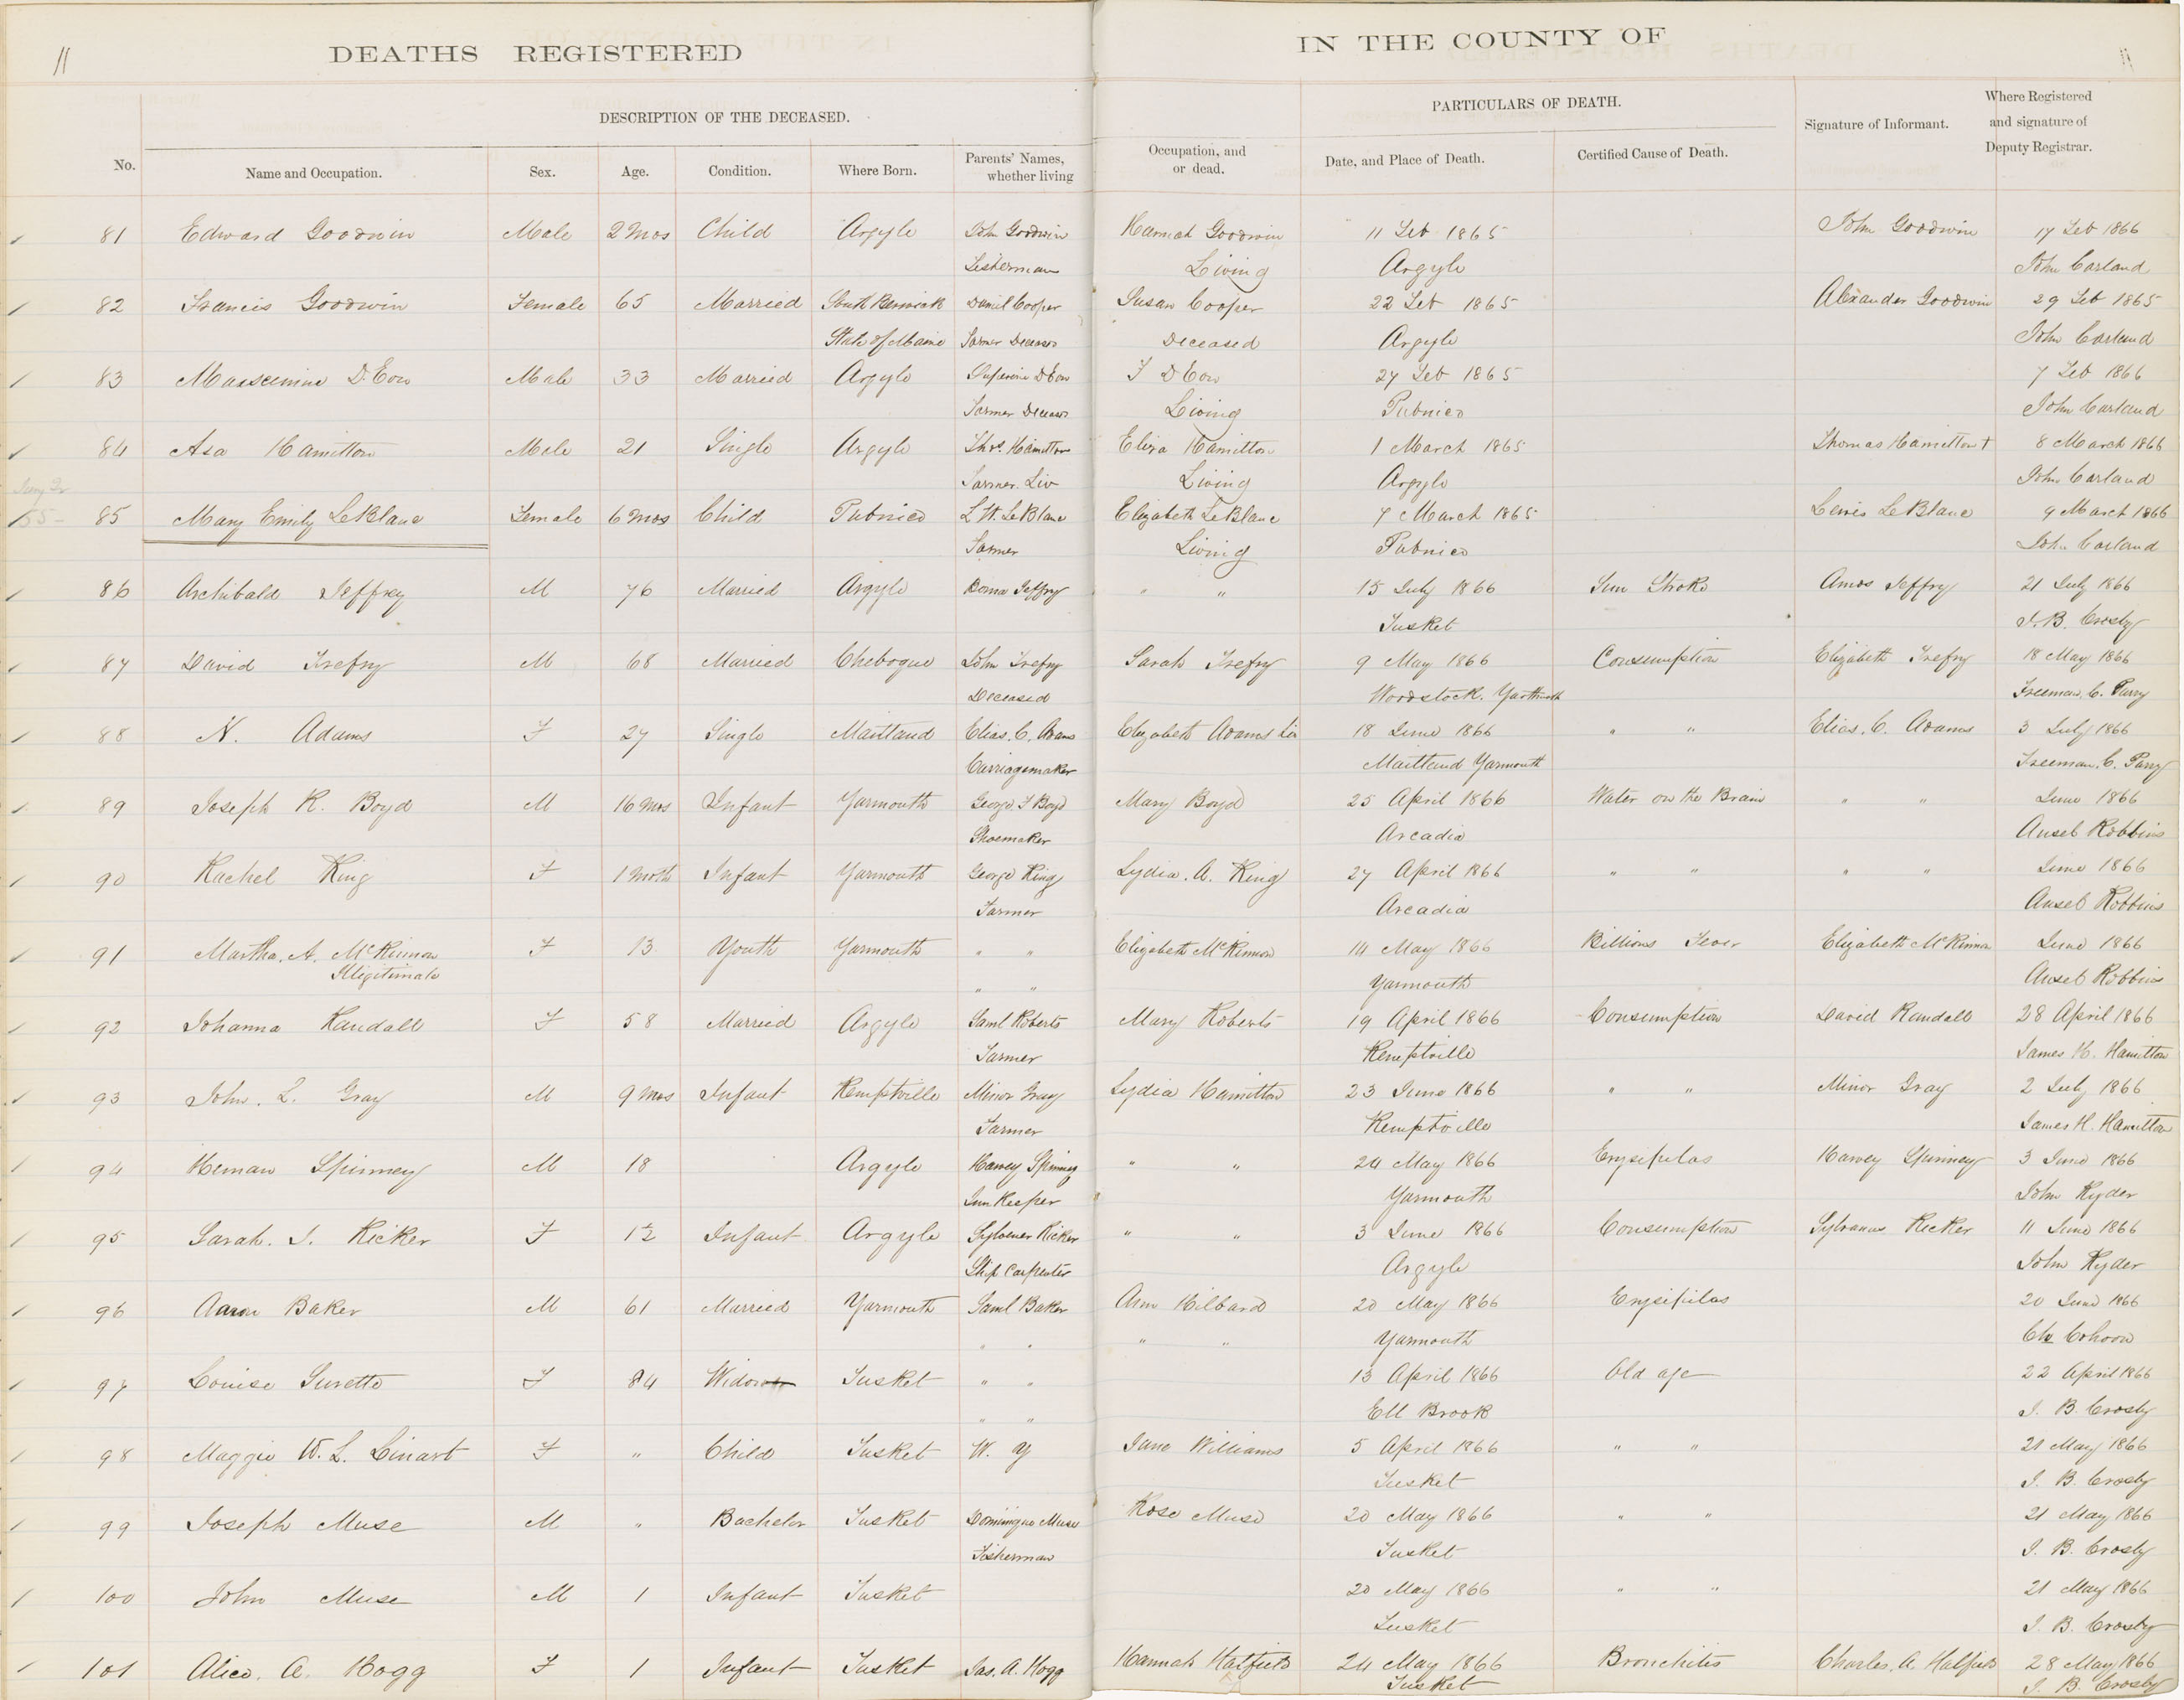 11
DEATHS REGISTERED
IN THE COUNTY OF
11
DESCRIPTION OF THE DECEASED.
PARTICULARS OF DEATH.
Signature of Informant.
Where Registered
and signature of
Deputy Registrar.
No.
Name and Occupation.
Sex.
Age.
Condition.
Where Born.
Parents' Names,
whether living
Occupation, and
or dead.
Date, and Place of Death.
Certified Cause of Death.
81 Edward Goodwin Male 2 mos Child Argyle John Goodwin Hannah Goodwin 11 Feb 1865 John Goodwin 17 Feb 1866
Fisherman Living Argyle John Carland
82 Francis Goodwin Female 65 Married South Berwick Daniel Cooper Susan Cooper 22 Feb 1865 Alexander Goodwin 29 Feb 1865
State of Maine Farmer Deceasd Deceased Argyle John Carland
83 D.Eon Male 33 Married Argyle D Eon F D Eon 27 Feb 1865 7 Feb 1866
Farmer Deceasd Living Pubnico John Carland
84 Asa Hamilton Male 21 Single Argyle Thos. Hamilton Eliza Hamilton 1 March 1865 Thomas Hamilton + 8 March 1866
Farmer. Liv Living Argyle John Carland
85 Mary Emily LeBlanc Female 6 mos Child Pubnico L. H. LeBlanc Elizabeth LeBlanc 7 March 1865 Lewis LeBlanc 9 March 1866
Farmer Living Pubnico John Carland
86 Archibald Jeffrey M 76 Married Argyle Jeffry " " 15 July 1866 Sun Stroke Amos Jeffry 21 July 1866
Tusket J. B. Crosby
87 David Trefry M 68 Married Chebogue John Trefry Sarah Trefry 9 May 1866 Consumption Elizabeth Trefry 18 May 1866
Deceased Woodstock. Yarmouth Freeman. C. Parry
88 N. Adams F 27 Single Maitland Elias. C. Adams Elizabeth Adams Liv 18 June 1866 " " Elias. C. Adams 3 July 1866
Carriagemaker Maitland Yarmouth Freeman. C. Parry
89 Joseph R. Boyd M 16 mos Infant Yarmouth George F Boyd Mary Boyd 25 April 1866 Water on the Brain " " June 1866
Shoemaker Arcadia Ansel Robbins
90 Rachel King F 1 moth Infant Yarmouth George King Lydia. A. King 27 April 1866 " " " " June 1866
Farmer Arcadia Ansel Robbins
91 Martha. A. McKinnon F 13 Youth Yarmouth " " Elizabeth McKinnon 14 May 1866 Billious Fever Elizabeth McKinnon June 1866
Illigitimate " " Yarmouth Ansel Robbins
92 Johanna Randall F 58 Married Argyle Saml Roberts Mary Roberts 19 April 1866 Consumption David Randall 28 April 1866
Farmer Kemptville James H. Hamilton
93 John. L. Gray M 9 mos Infant Kemptville Minor Gray Lydia Hamilton 23 June 1866 " " Minor Gray 2 July 1866
Farmer Kemptville James H. Hamilton
94 Heman Spinney M 18 Argyle Harvey Spinney " " 24 May 1866 Erysipulas Harvey Spinney 3 June 1866
Inn Keeper Yarmouth John Ryder
95 Sarah. J. Ricker F 1½ Infant Argyle Sylvener Ricker " " 3 June 1866 Consumption Sylvanus Ricker 11 June 1866
Ship Carpenter Argyle John Ryder
96 Aaron Baker M 61 Married Yarmouth Saml Baker Ann Hilbard 20 May 1866 Erysipilas 20 June 1866
" " " " Yarmouth Cohoon
97 Louise Surette F 84 Widow Tusket " " 13 April 1866 Old age 22 April 1866
" " Ell Brook J. B. Crosby
98 Maggie W. L. Linart F " Child Tusket W. Y Jane Williams 5 April 1866 " " 21 May 1866
Tusket J. B. Crosby
99 Joseph Muse M " Bachelor Tusket Dominique Muse Rose Muse 20 May 1866 " " 21 May 1866
Fisherman Tusket J. B. Crosby
100 John Muse M 1 Infant Tusket 20 May 1866 " " 21 May 1866
Tusket J. B. Crosby
101 Alice. A. Hogg F 1 Infant Tusket Jas. A. Hogg Hannah Hatfield 24 May 1866 Bronchitis Charles. A. Hatfield 28 May 1866
Tusket J. B. Crosby